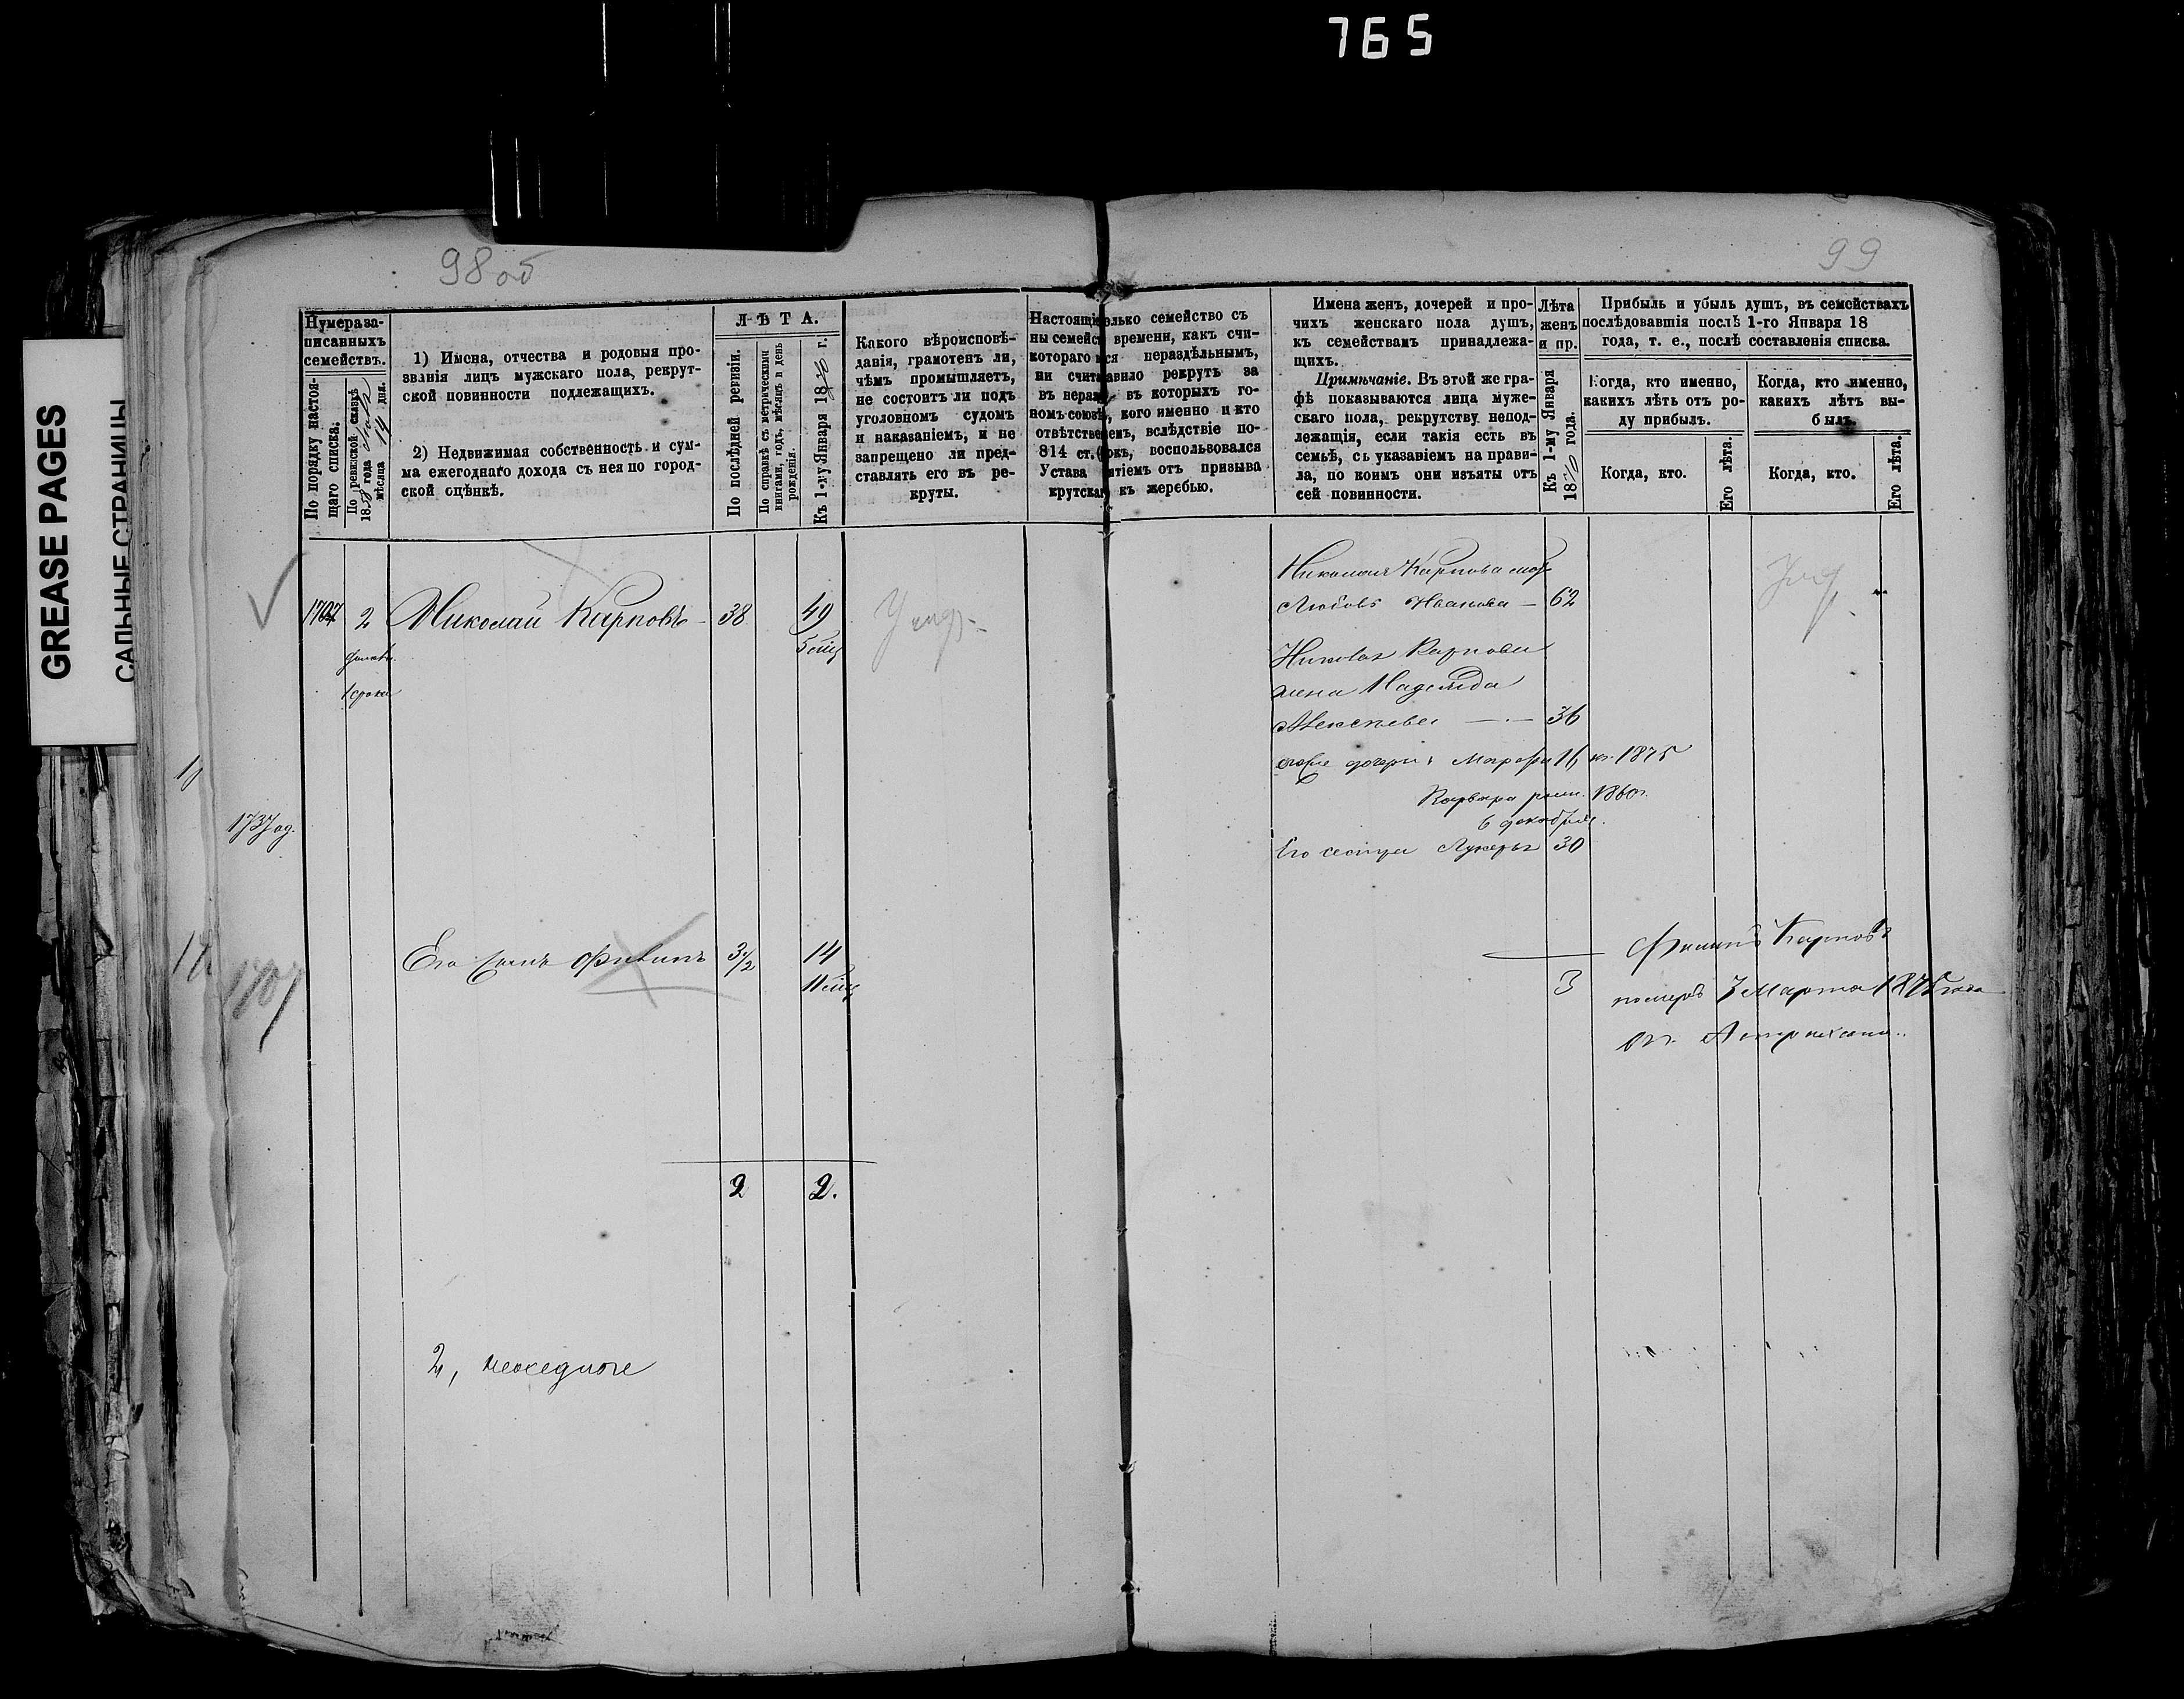 765
GREASE PAGES
САЛЬНЫЕ СТРАНИЦЫ
98 об
99
Нумера за-
писанныхъ
семействъ.
По порядку настоя-
щаго списка.
По ревизской сказкѣ
1858 года
мѣсяца 14 дня.
1) Имена, отчества и родовыя про-
званія лицъ мужскаго пола, рекрут-
ской повинности подлежащихъ.
2) Недвижимая собственность и сум-
ма ежегоднаго дохода съ нея по город-
ской оцѣнкѣ.
ЛѢТА.
По послѣдней ревизіи.
По справкѣ съ метрическими
книгами, годъ, мѣсяцъ и день
рожденія.
Къ 1-му Января 1870 г.
Какого вѣроисповѣ-
данія, грамотенъ ли,
чѣмъ промышляетъ,
не состоитъ ли подъ
уголовномъ судомъ
и наказаніемъ, и не
запрещено ли пред-
ставлять его въ ре-
круты.
Настоящі олько семейство съ
ны семейс времени, какъ счи-
котораго ся нераздѣльнымъ,
ни счит авило рекрутъ за
въ нераз въ которыхъ го-
номъ союзѣ, кого именно и кто
отвѣтстве емъ, вслѣдствіе по-
814 ст. окъ, воспользовался
Устава ятіемъ отъ призыва
крутска къ жеребью.
Имена женъ, дочерей и про-
чихъ женскаго пола душъ,
къ семействамъ принадлежа-
щихъ.
Примѣчаніе. Въ этой же гра-
фѣ показываются лица муже-
скаго пола, рекрутству непод-
лежащія, если такія есть въ
семьѣ, съ указаніемъ на прави-
ла, по коимъ они изъяты отъ
сей повинности.
Лѣта
женъ
и пр.
Къ 1-му Января
1870 года.
Прибыль и убыль душъ, въ семействахъ
послѣдовавшія послѣ 1-го Января 18
года, т. е., послѣ составленія списка.
Когда, кто именно,
какихъ лѣтъ отъ ро-
ду прибылъ.
Когда, кто именно,
какихъ лѣтъ вы-
былъ.
Когда, кто.
Его лѣта.
Когда, кто.
Его лѣта.
1707 2 Николай Карповъ - 38 49
5 мѣц
Николая Карпова
Любовь Иванова — 62
Николая Карпова
жена Надежда
Алексѣева — 36
дочери: Марфа 16 1875
Варвара 1860г.
6 декабря.
Его сестра Лукерья 30
1737
1707
Его сынъ Филипъ 3½ 14
11 мѣц
Филипъ Карповъ
3 померъ 7 Марта 1875 года
въ Астрахани.
2 2.
2,